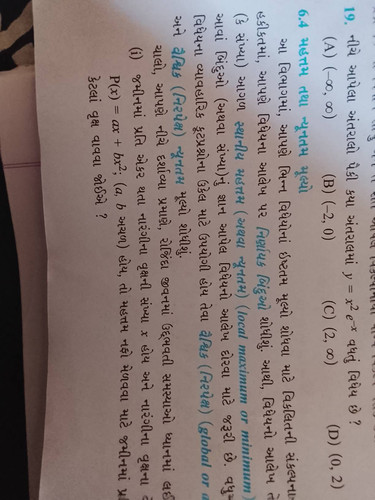 19. નીચે આપેલા અંતરાલો પૈકી કયા અંતરાલમાં y = x² e⁻ˣ વધતું વિધેય છે ?
(A) (−∞, ∞) (B) (−2, 0) (C) (2, ∞) (D) (0, 2)
6.4 મહત્તમ તથા ન્યૂનતમ મૂલ્યો
આ વિભાગમાં, આપણે ભિન્ન વિધેયોનાં ઈષ્ટતમ મૂલ્યો શોધવા માટે વિકલિતની સંકલ્પના
હકીકતમાં, આપણે વિધેયના આલેખ પર નિર્ણાયક બિંદુઓ શોધીશું. આથી વિધેયનો આલેખ તે
(કે સંખ્યા) આગળ સ્થાનીય મહત્તમ (અથવા ન્યૂનતમ) (local maximum or minimum)
આવાં બિંદુઓ (અથવા સંખ્યા)નું જ્ઞાન આપેલ વિધેયનો આલેખ દોરવા માટે જરૂરી છે. વધુમ
વિધેયના વ્યાવહારિક કૂટપ્રશ્નોના ઉકેલ માટે ઉપયોગી હોય તેવા વૈશ્વિક (નિરપેક્ષ) (global or a
અને વૈશ્વિક (નિરપેક્ષ) ન્યૂનતમ મૂલ્યો શોધીશું.
ચાલો, આપણે નીચે દર્શાવ્યા પ્રમાણે, રોજિંદા જીવનમાં ઉદ્ભવતી સમસ્યાઓ ધ્યાનમાં લઈ
(i) જમીનમાં પ્રતિ એકર થતા નારંગીના વૃક્ષની સંખ્યા x હોય અને નારંગીના વૃક્ષના
P(x) = ax + bx², (a, b અચળ) હોય, તો મહત્તમ નફો મેળવવા માટે જમીનમાં પ્ર
કેટલાં વૃક્ષ વાવવા જોઈએ ?